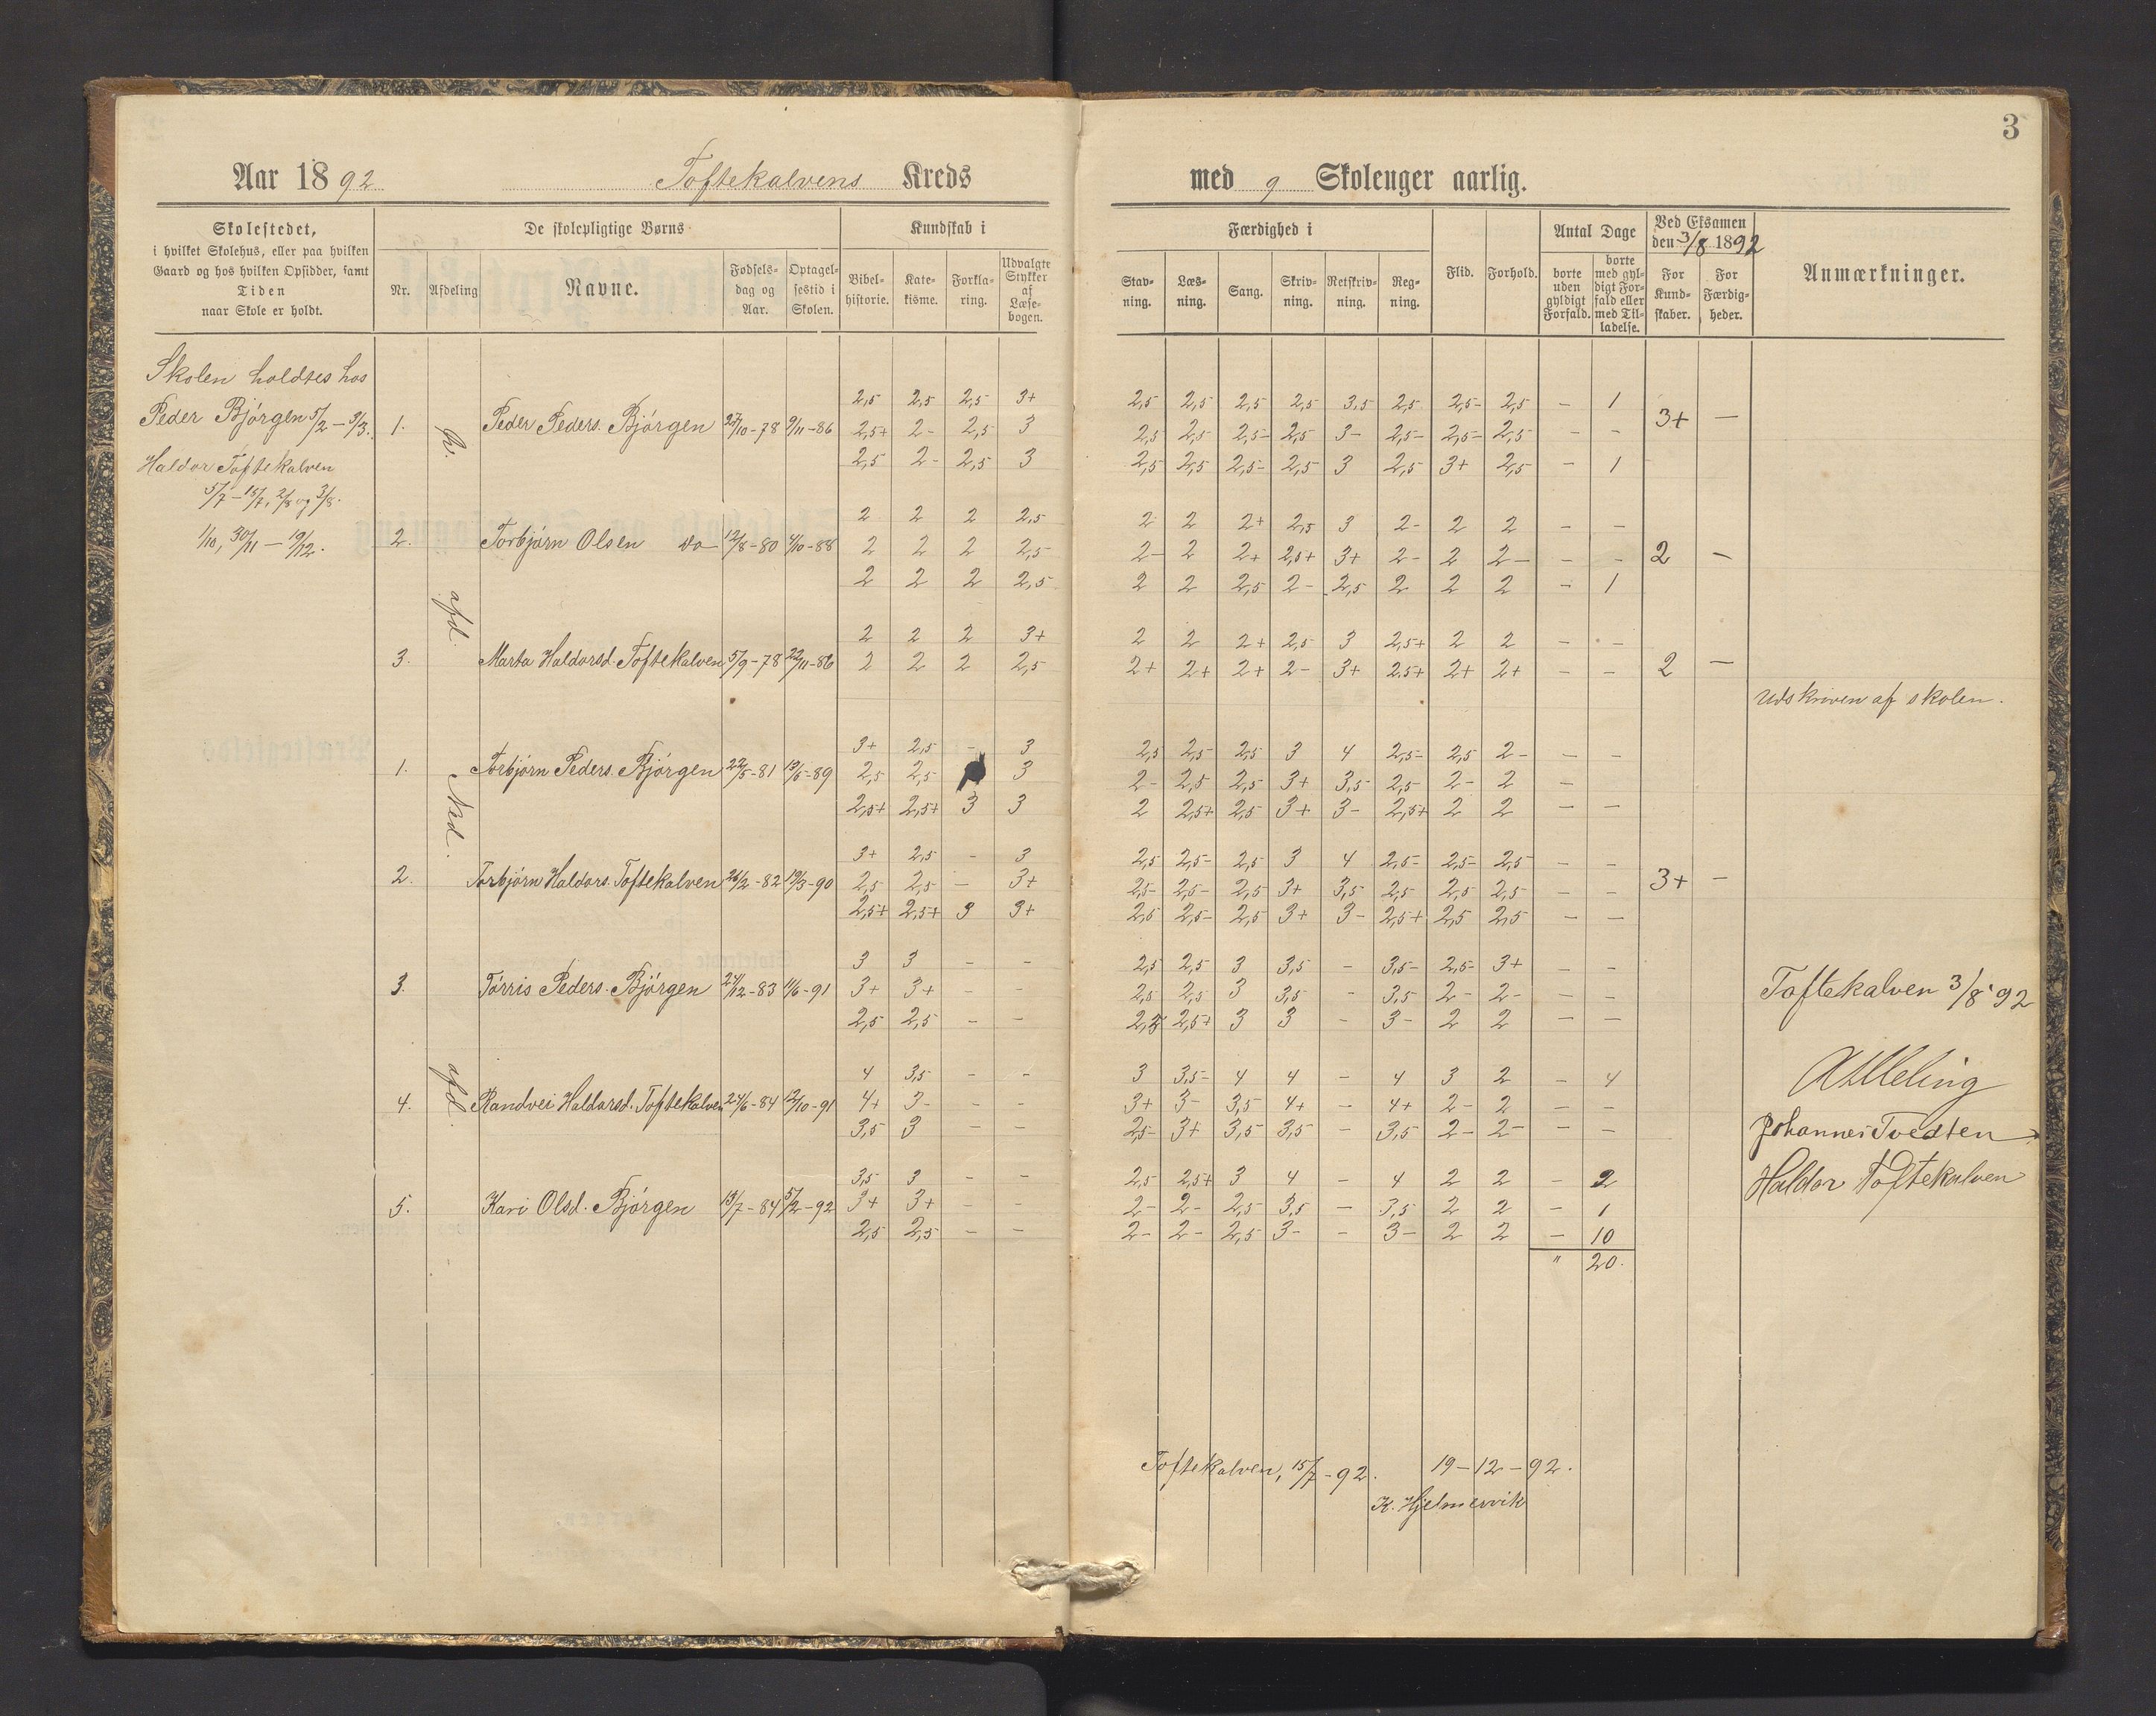 3
Aar 1892 Toftekalvens Kreds med 9 Skoleuger aarlig.
Skolestedet,
i hvilket Skolehus, eller paa hvilken
Gaard og hos hvilken Opsidder, samt
Tiden
naar Skole er holdt.
De skolepligtige Børns
Nr. Afdeling Navne. Fødsels-dag og Aar. Optagel-sestid i Skolen.
Kundskab i
Bibel-historie. Kate-kisme. Forkla-ring. Udvalgte Stykker af Læse-bogen.
Færdighed i
Stav-ning. Læs-ning. Sang. Skriv-ning. Retskriv-ning. Reg-ning.
Flid. Forhold.
Antal Dage
borte uden gyldigt Forfald. borte med gyl-digt For-fald eller med Til-ladelse.
Ved Eksamen
den 3/8 1892
For Kund-skaber. For Færdig-heder.
Anmærkninger.
Skolen holdtes hos
Peder Bjørgen 5/2 – 3/3.
Haldor Toftekalven
5/7 – 15/7, 2/8 og 3/8.
1/10, 30/11 – 19/12.
ø. afd.
2,5 2,5 2,5 3+ 2,5 2,5 2,5 2,5 3,5 2,5 2,5- 2,5 – 1
1. Peder Peders. Bjørgen 27/10-78 9/11-86 2,5+ 2- 2,5 3 2,5 2,5 2,5- 2,5 3- 2,5- 2,5- 2,5 – – 3+ –
2,5 2- 2,5 3 2,5 2,5 2,5- 2,5 3 2,5 3+ 2,5 – 1
2 2 2 2,5 2 2 2+ 2,5 3 2- 2 2 – –
2. Torbjørn Olsen do 12/8-80 4/10-88 2 2 2 2,5- 2- 2 2+ 2,5+ 3+ 2- 2 2- – – 2 –
2 2 2 2,5 2 2 2,5 2- 2,5 2 2 2 – 1
2 2 2 3+ 2 2 2+ 2,5 3 2,5+ 2 2 – –
3. Marta Haldorsd. Toftekalven 5/9-78 22/11-86 2 2 2 2,5 2+ 2+ 2+ 2- 3+ 2,5+ 2+ 2+ – – 2 –
Udskriven af skolen.
Ned. afd.
3+ 2,5 – 3 2,5 2,5- 2,5 3 4 2,5- 2,5 2- – –
1. Torbjørn Peders. Bjørgen 22/5-81 19/6-89 2,5 2,5- 3 2- 2,5 2,5 3+ 3,5 2,5 2- 2 –
2,5+ 2,5+ 3 3 2 2,5+ 2,5 3+ 3- 2,5+ 2 2 – –
3+ 2,5 – 3 2,5 2,5- 2,5 3 4 2,5- 2,5- 2,5 – –
2. Torbjørn Haldors. Toftekalven 26/2-82 19/3-90 2,5 2,5- – 3+ 2,5- 2,5- 2,5 3+ 3,5 2,5 2,5 2,5 – – 3+ –
2,5+ 2,5+ 3 3+ 2,5 2,5- 2,5 3+ 3- 2,5+ 2,5 2,5 – –
3 3 – – 2,5 2,5 3 3,5 – 3,5- 2,5- 3+ – –
3. Tørris Peders. Bjørgen 24/12-83 4/6-91 3+ 3+ – – 2,5 2,5 3 3,5 – 3,5 2- 2- – –
2,5 2,5 – – 2,5 2,5+ 3 3 – 3- 2 2 – –
4 3,5 – – 3 3,5- 4 4 – 4 3 2 – 4
4. Randvei Haldorsd. Toftekalven 24/6-84 12/10-91 4+ 3- – – 3+ 3- 3,5 4+ – 4+ 2- 2 – –
3,5 3 – – 2,5- 3+ 3,5 3,5 – 3,5 2- 2- – –
3,5 3 – – 2,5 2,5+ 3 4 – 4 2 2 – 2
5. Kari Olsd. Bjørgen 19/7-84 5/2-92 3+ 3+ – – 2- 2- 2,5 3,5 – 3,5 2 2 – 1
2,5 2,5 – – 2- 2- 2,5 3- – 3- 2 2 – 10
" 20.
Toftekalven 3/8 '92
Johannes Tvedten
Haldor Toftekalven
Toftekalven, 15/7-92. 19-12-92.
K. Hjelmervik